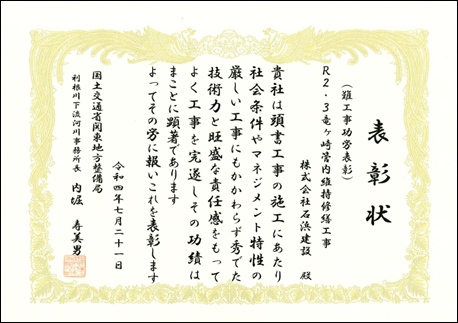 表彰状
（難工事功労表彰）
R2・3竜ヶ崎管内維持修繕工事
株式会社石浜建設 殿
貴社は頭書工事の施工にあたり
社会条件やマネジメント特性の
厳しい工事にもかかわらず秀でた
技術力と旺盛な責任感をもって
よく工事を完遂しその功績は
まことに顕著であります
よってその労に報いこれを表彰します
令和四年七月二十一日
国土交通省関東地方整備局
利根川下流河川事務所長 内堀 寿美男